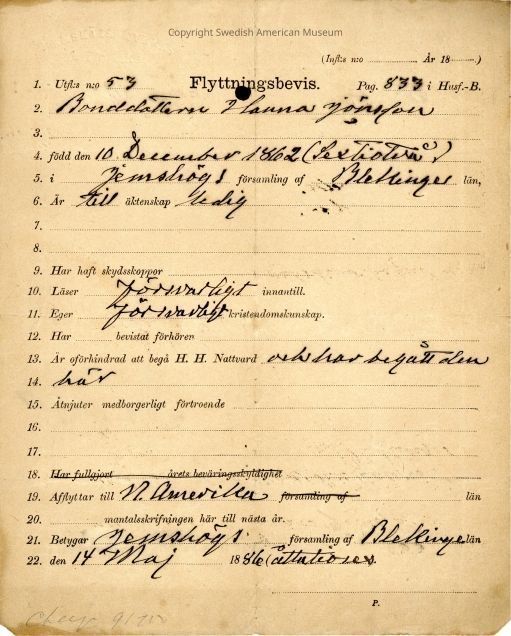 Copyright Swedish American Museum
(Infl:s n:o År 18 )
1. Utfl:s n:o 53 Flyttningsbevis. Pag. 833 i Husf.-B.
2. Bonddottern Hanna Jönsson
3.
4. född den 10 December 1862 (Sextiotvå)
5. i Jemshögs församling af Blekinge län,
6. Är till äktenskap ledig
7.
8.
9. Har haft skydsskoppor
10. Läser försvarligt innantill.
11. Eger försvarligt kristendomskunskap.
12. Har bevistat förhören
13. Är oförhindrad att begå H. H. Nattvard och har begått den
14. här
15. Åtnjuter medborgerligt förtroende
16.
17.
18. Har fullgjort årets beväringsskyldighet
19. Afflyttar till N. Amerika församling af län
20. mantalsskrifningen här till nästa år.
21. Betygar Jemshögs församling af Blekinge län
22. den 14 Maj 1886 (åttatiosex).
P.